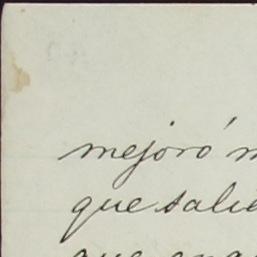 mejoró
que salie
que